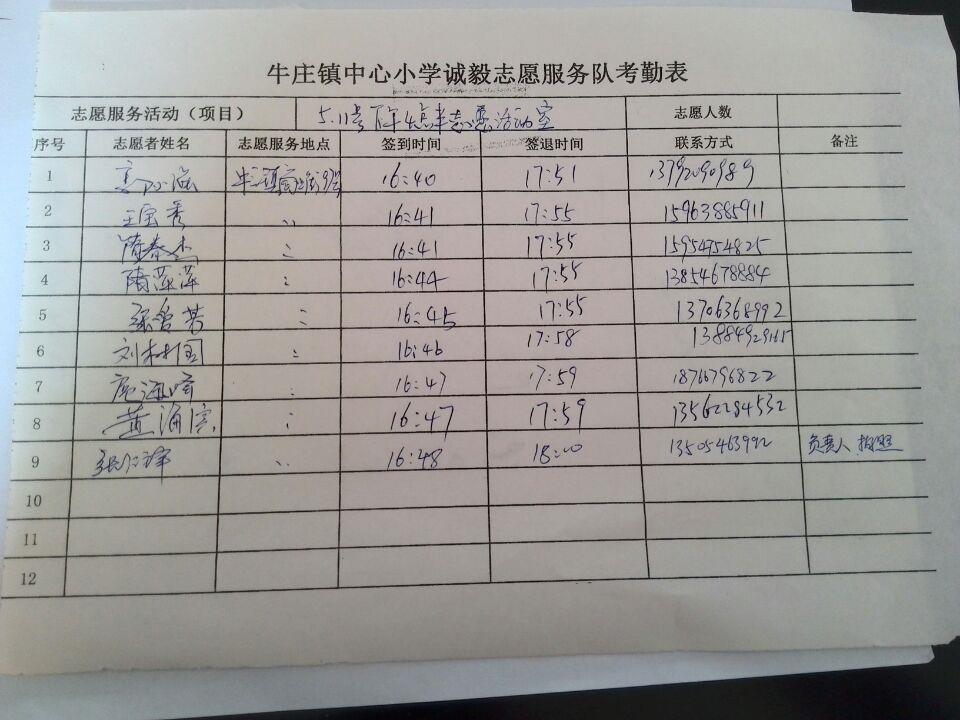 牛庄镇中心小学诚毅志愿服务队考勤表
志愿服务活动（项目） 5.11号下午4点半志愿活动室 志愿人数
序号 志愿者姓名 志愿服务地点 签到时间 签退时间 联系方式 备注
1 16:40 17:51 13792090989
2 王宝秀 〃 16:41 17:55 15963885911
3 隋春杰 〃 16:41 17:55 15954754825
4 隋萍萍 〃 16:44 17:55 13854678884
5 〃 16:45 17:55 13706368992
6 刘树国 〃 16:46 17:58
7 〃 16:47 17:59 18766796822
8 黄海滨 〃 16:47 17:59 13562284532
9 〃 16:48 18:00 13505463992 负责人 拍照
10
11
12